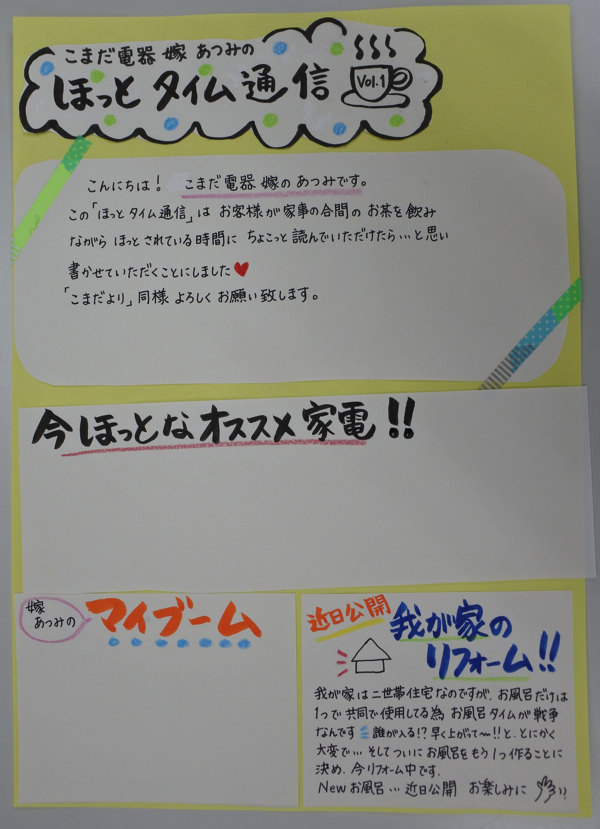 こまだ電器 嫁 あつみの
ほっと タイム 通信
Vol.1
こんにちは! こまだ電器 嫁の あつみです。
この「ほっと タイム通信」は お客様が家事の合間の お茶を飲み
ながら ほっと されている時間に ちょこっと 読んでいただけたら…と思い
書かせていただくことにしました♥
「こまだより」同様 よろしく お願い致します。
今 ほっとな オススメ 家電 !!
嫁
あつみの
マイブーム
近日公開
我が家の
リフォーム!!
我が家は二世帯住宅なのですが、お風呂だけは
1つで 共同で使用してる為 お風呂タイムが戦争
なんです 誰が入る!? 早く上がって〜!!と、とにかく
大変で… そして ついに お風呂をもう1つ作ることに
決め、今リフォーム中です。
Newお風呂… 近日公開 お楽しみに